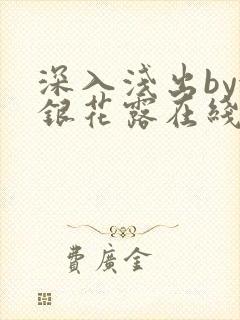 深入浅出by
銀花露在綫
費廣金